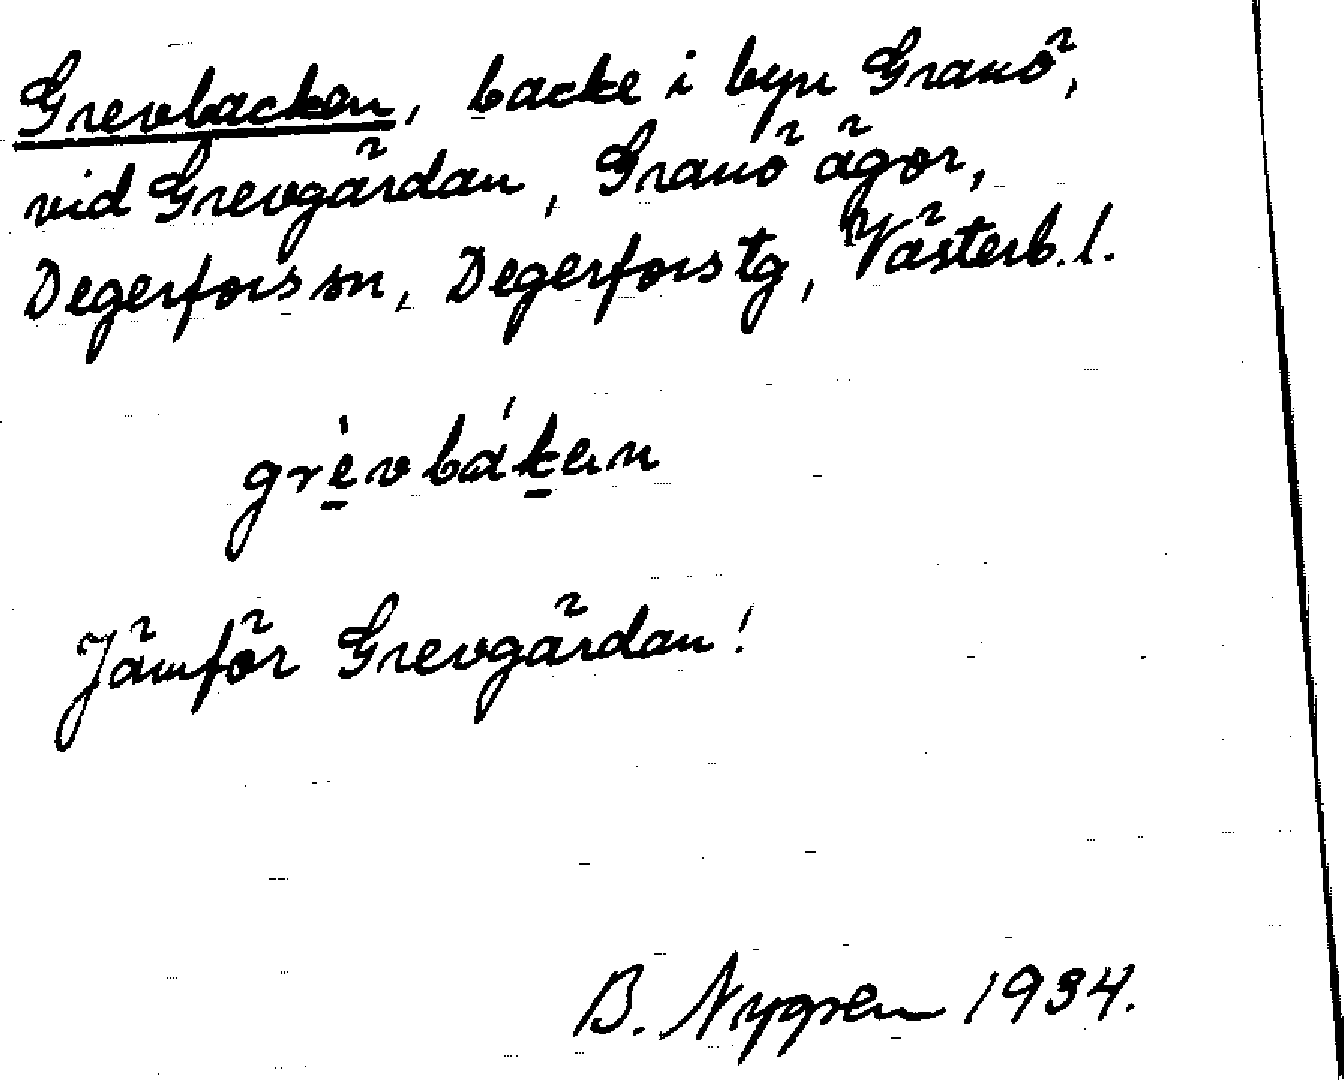 Grevbacken, backe i byn Granö,
vid Grevgärdan, Granö ägor,
Degerfors sn, Degerfors tg, Västerb. l.
grè̱vbáḵen
Jämför Grevgärdan!
B. Nygren 1934.